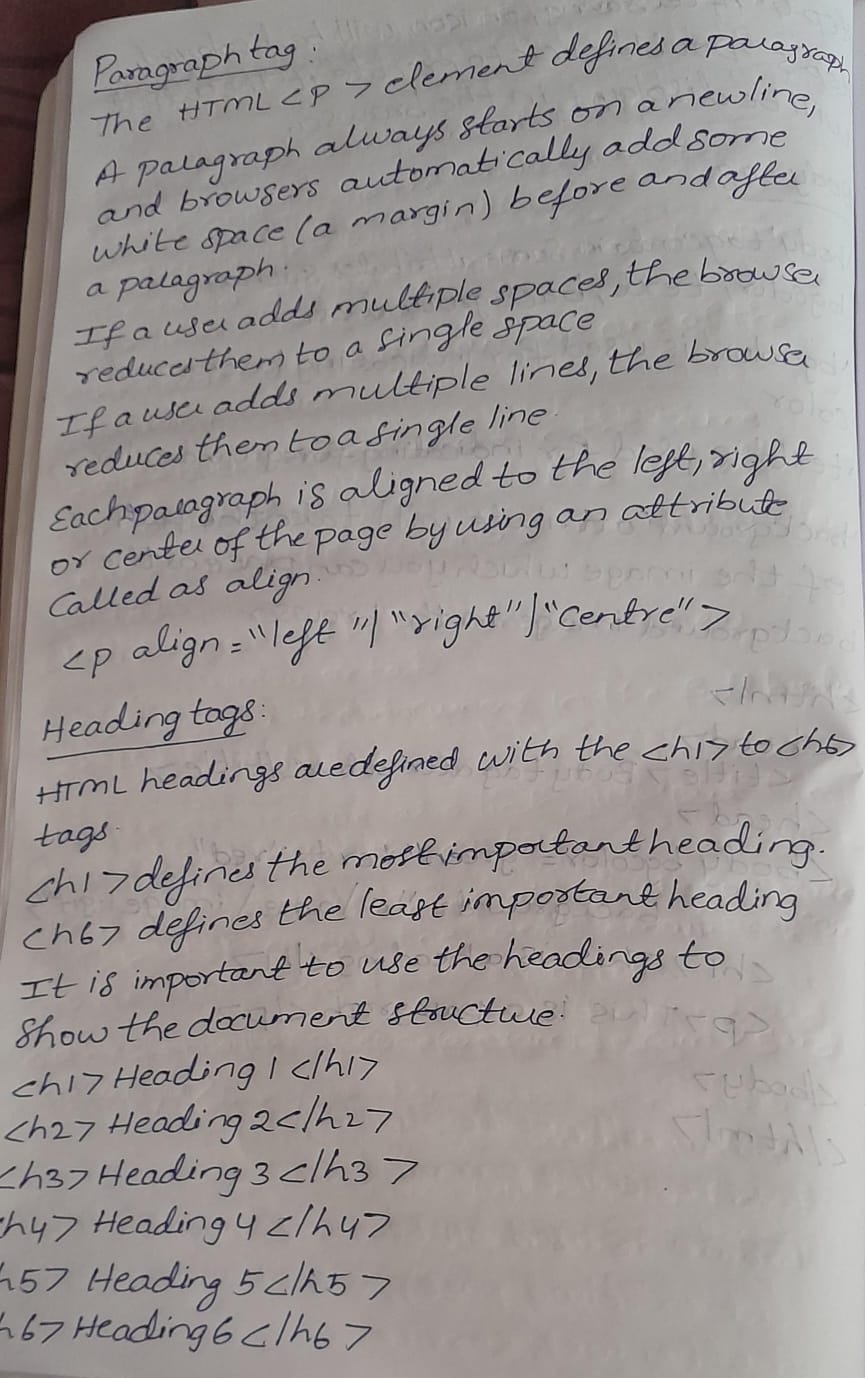 Paragraph tag:
The HTML <p> element defines a paragraph
A paragraph always starts on a newline,
and browsers automatically add some
white space (a margin) before and after
a paragraph.
If a user adds multiple spaces, the browser
reduces them to a single space
If a user adds multiple lines, the browser
reduces them to a single line.
Each paragraph is aligned to the left, right
or center of the page by using an attribute
Called as align.
<p align="left"|"right"|"centre">
Heading tags:
HTML headings are defined with the <h1> to <h6>
tags.
<h1> defines the most important heading.
<h6> defines the least important heading
It is important to use the headings to
Show the document structure.
<h1> Heading 1 </h1>
<h2> Heading 2 </h2>
<h3> Heading 3 </h3>
h4> Heading 4 </h4>
h5> Heading 5 </h5>
h6> Heading 6 </h6>